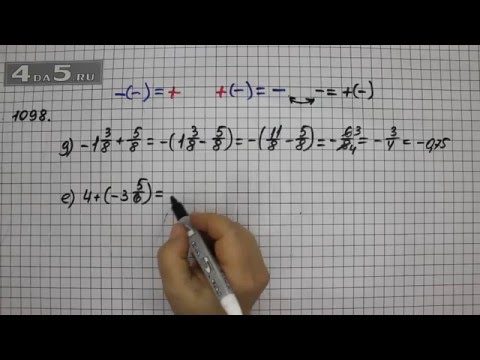 4DA5.RU
-(-) = +   +(-) = -   - = +(-)
1098.
д) -1 3/8 + 5/8 = -(1 3/8 - 5/8) = -(11/8 - 5/8) = - 6̸ 3/8̸ 4 = - 3/4 = -0,75
е) 4 + (-3 5/6) =